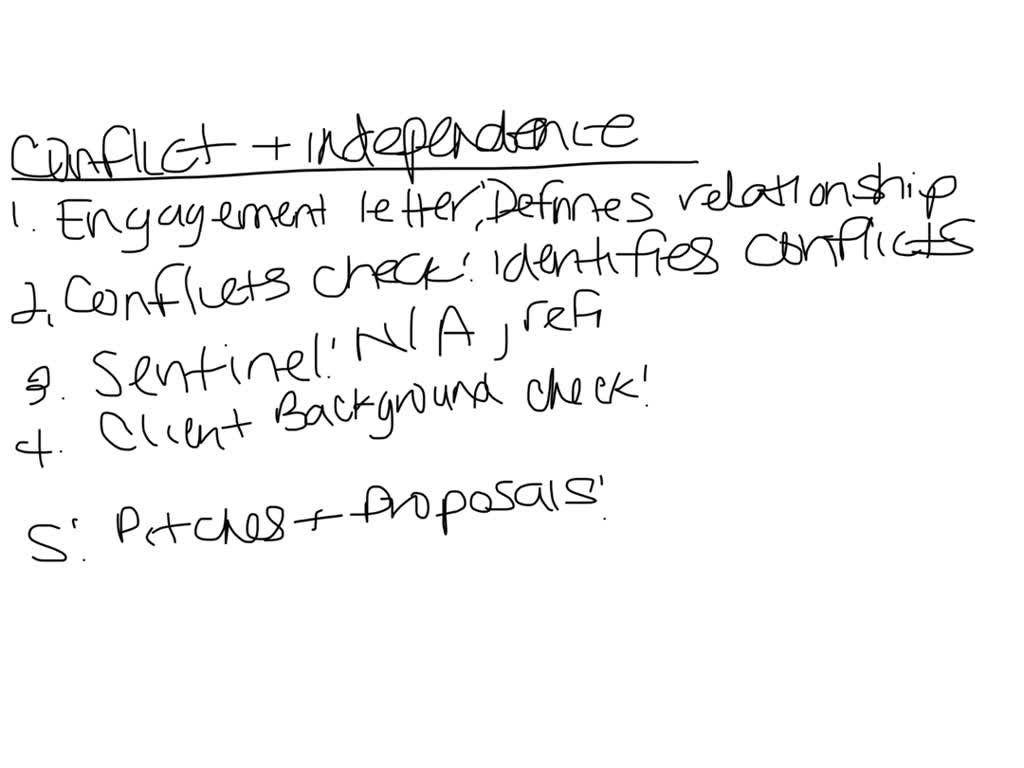 Conflict + independence
1. Engagement letter: Defines relationship
2. Conflicts check: identifies conflicts
3. Sentinel: N/A, refi
4. Client Background check:
5. Pitches + Proposals: